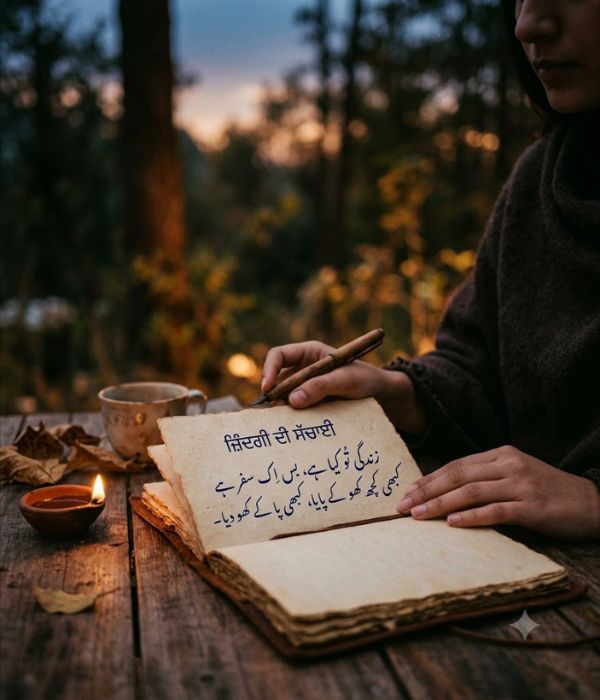 ਜ਼ਿੰਦਗੀ ਦੀ ਸੱਚਾਈ
زندگی تُو کیا ہے، بس اِک سفر ہے
کبھی کچھ کھو کے پایا، کبھی پا کے کھو دیا۔